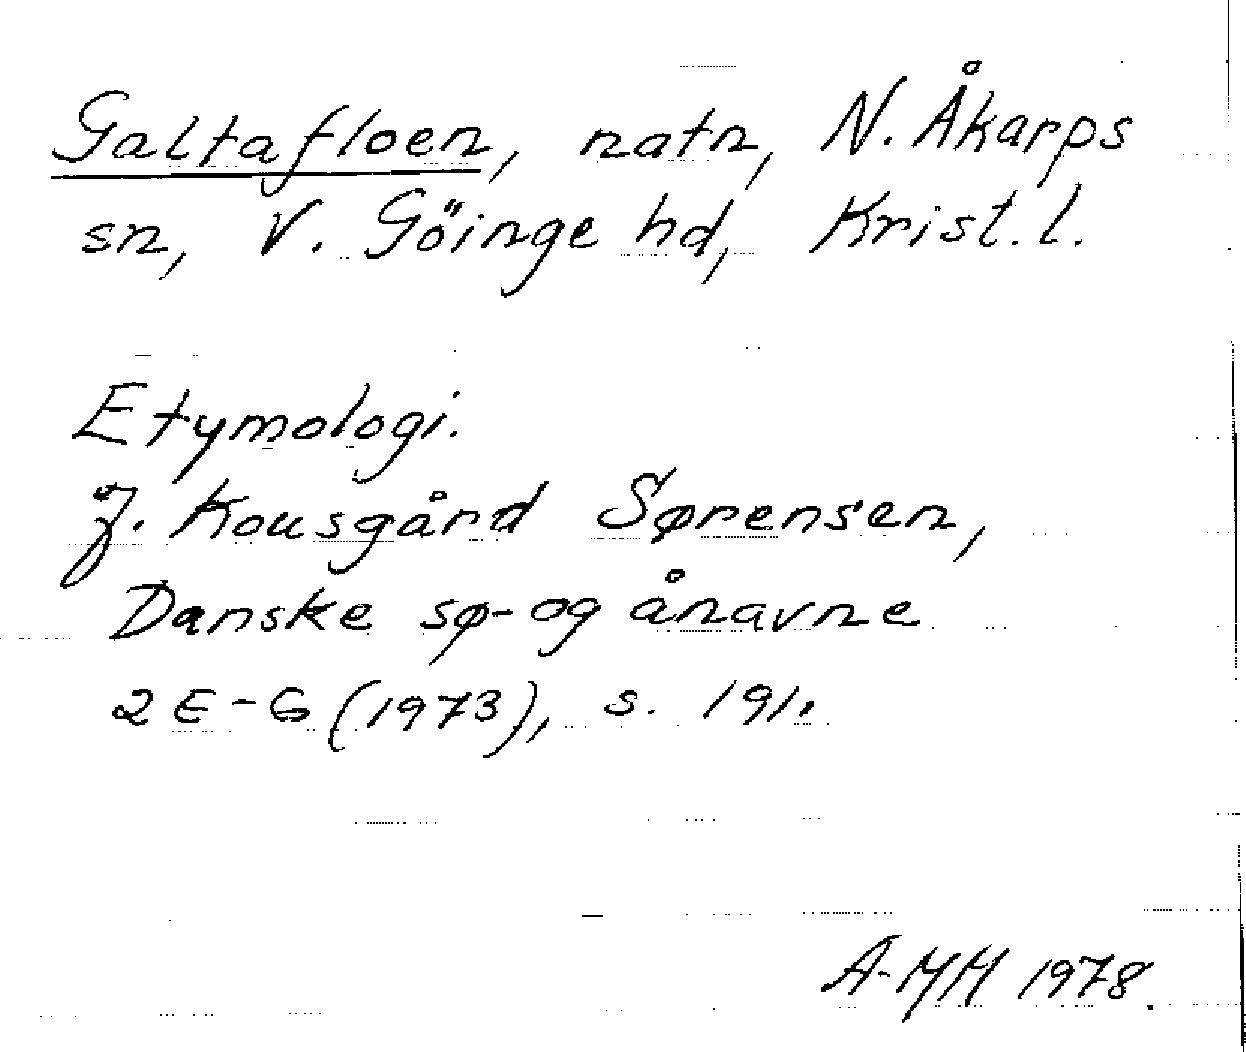 Galtafloen, natn, N. Åkarps
sn, V. Göinge hd, Krist. l.
Etymologi.
J. Kousgård Sørensen,
Danske sø- og ånavne
2 E-G (1973), s. 191.
A-MH 1978.